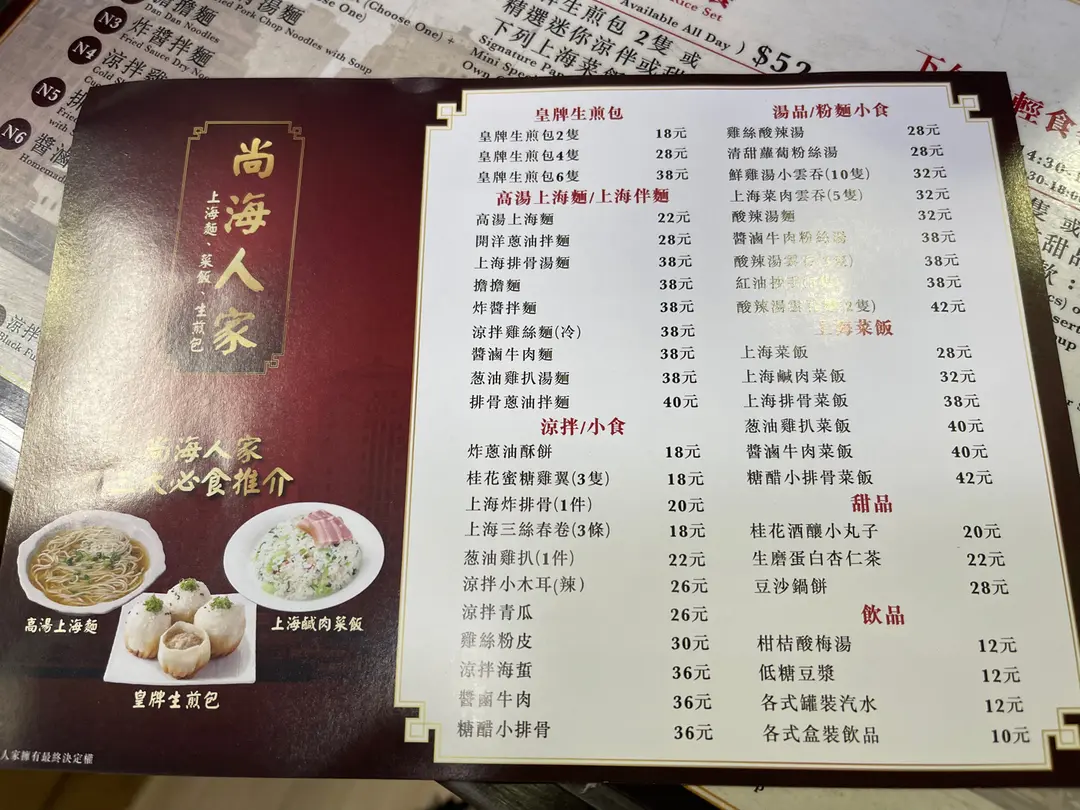 N3
擔擔麵
Dan Dan Noodles
炸醬拌麵
N4
N5
N6
Homemade
with Soup
(Choose One)
Available All Day )
$52
生煎包 2隻 或
精選迷你涼伴或甜
下列上海菜飯
Rice Set
輕食
尚海人家
上海麵、菜飯、生煎包
尚海人家
三大必食推介
高湯上海麵
上海鹹肉菜飯
皇牌生煎包
人家擁有最終決定權
皇牌生煎包
皇牌生煎包2隻 18元
皇牌生煎包4隻 28元
皇牌生煎包6隻 38元
高湯上海麵/上海伴麵
高湯上海麵 22元
開洋蔥油拌麵 28元
上海排骨湯麵 38元
擔擔麵 38元
炸醬拌麵 38元
涼拌雞絲麵(冷) 38元
醬滷牛肉麵 38元
葱油雞扒湯麵 38元
排骨蔥油拌麵 40元
涼拌/小食
炸蔥油酥餅 18元
桂花蜜糖雞翼(3隻) 18元
上海炸排骨(1件) 20元
上海三絲春卷(3條) 18元
葱油雞扒(1件) 22元
涼拌小木耳(辣) 26元
涼拌青瓜 26元
雞絲粉皮 30元
涼拌海蜇 36元
醬鹵牛肉 36元
糖醋小排骨 36元
湯品/粉麵小食
雞絲酸辣湯 28元
清甜蘿蔔粉絲湯 28元
鮮雞湯小雲吞(10隻) 32元
上海菜肉雲吞(5隻) 32元
酸辣湯麵 32元
醬滷牛肉粉絲湯 38元
酸辣湯雲 隻) 38元
紅油抄手 38元
酸辣湯雲 2隻) 42元
上海菜飯
上海菜飯 28元
上海鹹肉菜飯 32元
上海排骨菜飯 38元
葱油雞扒菜飯 40元
醬滷牛肉菜飯 40元
糖醋小排骨菜飯 42元
甜品
桂花酒釀小丸子 20元
生磨蛋白杏仁茶 22元
豆沙鍋餅 28元
飲品
柑桔酸梅湯 12元
低糖豆漿 12元
各式罐裝汽水 12元
各式盒裝飲品 10元